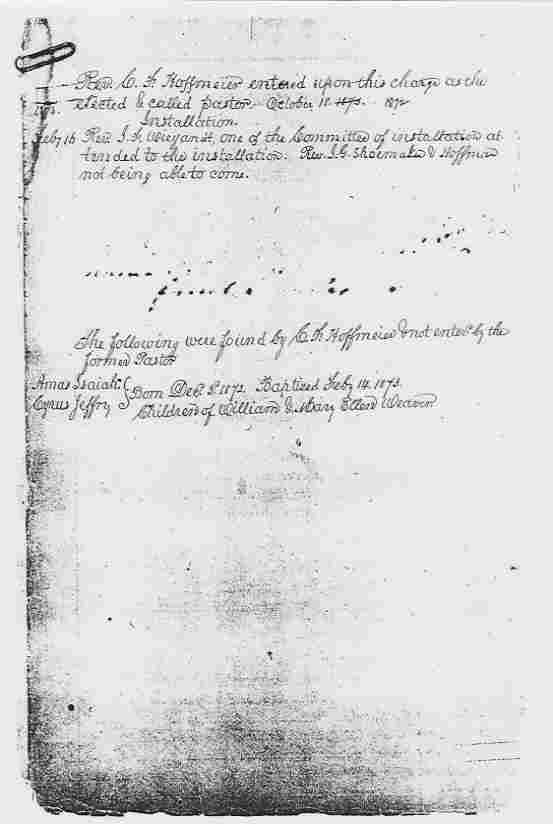 Rev. C. F. Hoffmeier entered upon this charge as the
elected & called pastor October 1873. 1872
Installation.
Feby 16 Rev. one of the Committee of installation at
tended to the installation. Rev. J. G. Shoemaker &
not being able to come.
The following were found by C. F. Hoffmeier & not enterd by the
former Pastor
Amas Isaiah
Cyrus Jeffry } Born Dec. 1872. Baptised Feby 14. 1873.
Children of William & Mary Ellen Weaver